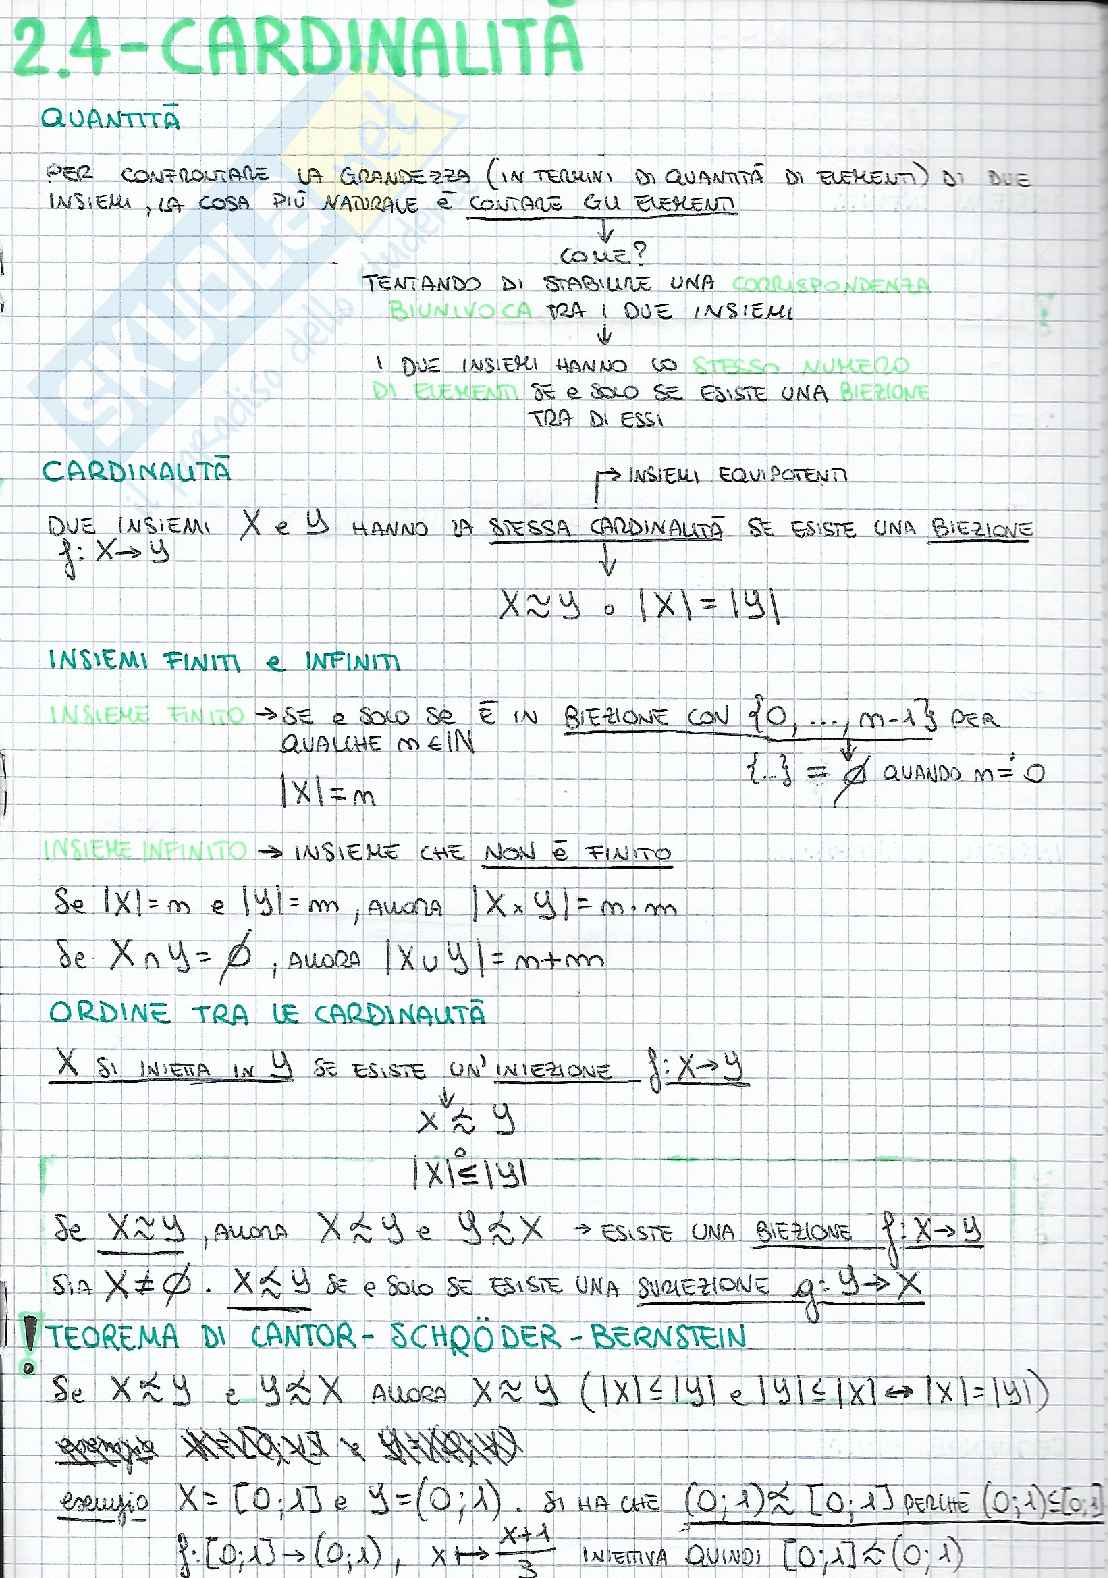 2.4 - CARDINALITÀ
QUANTITÀ
PER CONFRONTARE LA GRANDEZZA (IN TERMINI DI QUANTITÀ DI ELEMENTI) DI DUE
INSIEMI, LA COSA PIÙ NATURALE È CONTARE GLI ELEMENTI
↓
COME?
TENTANDO DI STABILIRE UNA CORRISPONDENZA
BIUNIVOCA TRA I DUE INSIEMI
↓
I DUE INSIEMI HANNO LO STESSO NUMERO
DI ELEMENTI SE e SOLO SE ESISTE UNA BIEZIONE
TRA DI ESSI
CARDINALITÀ
→ INSIEMI EQUIPOTENTI
DUE INSIEMI X e Y HANNO LA STESSA CARDINALITÀ SE ESISTE UNA BIEZIONE
f: X→Y
↓
X≈Y o |X|=|Y|
INSIEMI FINITI e INFINITI
INSIEME FINITO → SE e SOLO SE È IN BIEZIONE CON {0, ..., n-1} PER
QUALCHE n∈ℕ
↓
{...} = ∅ QUANDO n = 0
|X|=n
INSIEME INFINITO → INSIEME CHE NON È FINITO
Se |X|=n e |Y|=m, ALLORA |X×Y|=n·m
Se X∩Y=∅, ALLORA |X∪Y|=n+m
ORDINE TRA LE CARDINALITÀ
X SI INIETTA IN Y SE ESISTE UN'INIEZIONE f: X→Y
↓
X ≾ Y
o
|X|≤|Y|
Se X≈Y, ALLORA X≾Y e Y≾X → ESISTE UNA BIEZIONE f: X→Y
SIA X≠∅. X≾Y SE e SOLO SE ESISTE UNA SURIEZIONE g: Y→X
! TEOREMA DI CANTOR - SCHRÖDER - BERNSTEIN
Se X≾Y e Y≾X ALLORA X≈Y (|X|≤|Y| e |Y|≤|X| ↔ |X|=|Y|)
esempio X=[0;1] e Y=(0;1). SI HA CHE (0;1)≾[0;1] PERCHÉ (0;1)⊆[0;1]
f:[0;1]→(0;1), x↦ x+1/3 INIETTIVA QUINDI [0;1]≾(0;1)
SKUOLA.net
il paradiso dello